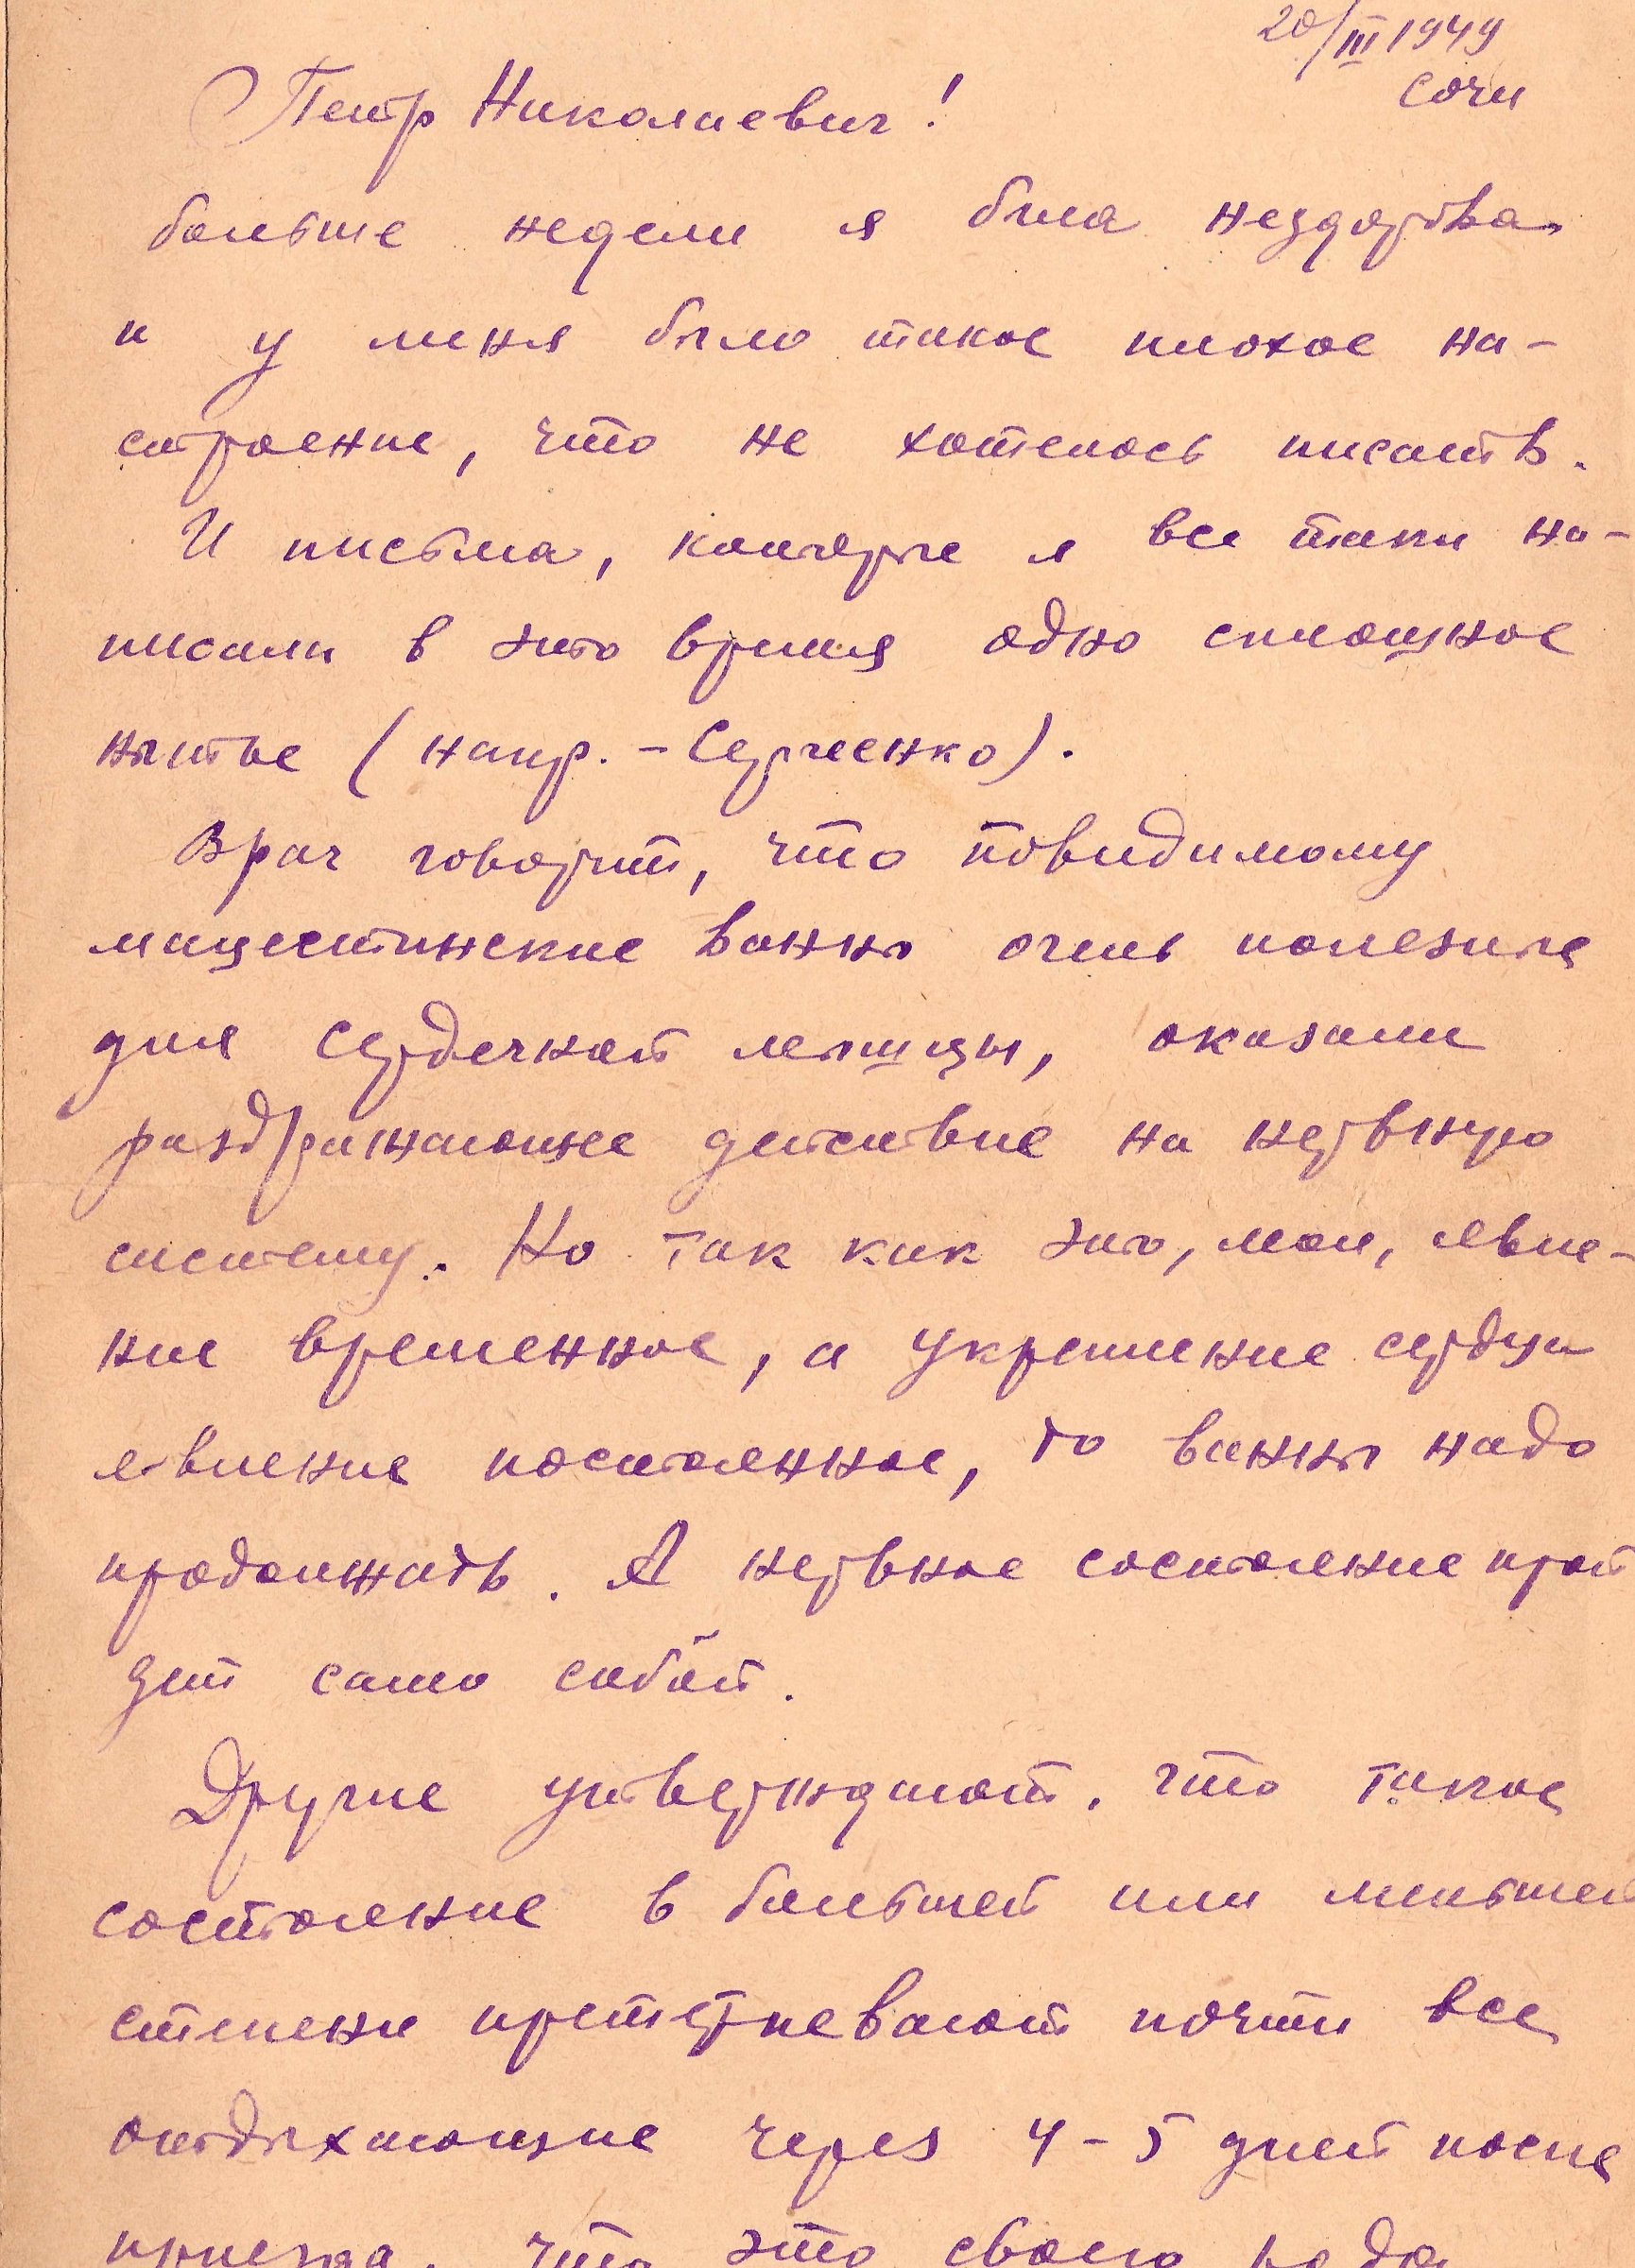 20/III 1949
Сочи
Петр Николаевич!
больше недели я была нездорова
и у меня было такое плохое на-
строение, что не хотелось писать.
И письма, которые я все таки на-
писали в это время одно сплошное
нытье (напр. - Сергеенко).
Врач говорит, что повидимому
мацестинские ванны очень полезные
для сердечной мышцы, оказали
раздражающее действие на нервную
систему. Но так как это, мол, явле-
ние временное, а укрепление сердца
явление постоянное, то ванны надо
продолжать. А нервное состояние прой
дет само собой.
Другие утверждают, что такое
состояние в большей или меньшей
степени претерпевают почти все
отдыхающие через 4-5 дней после
приезда, что это своего рода